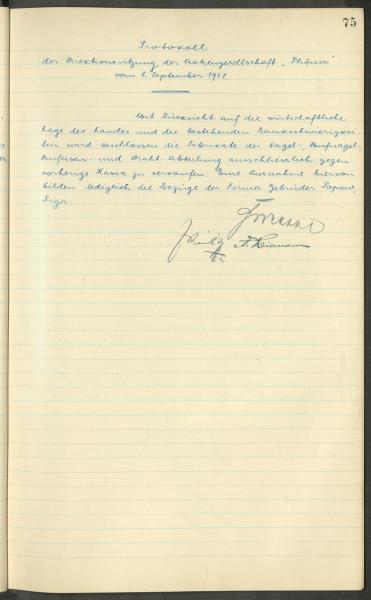 75
Protokoll
der Direktionssitzung der Aktiengesellschaft „Phönix"
vom 8. September 1931.
Mit Rücksicht auf die wirtschaftliche
Lage des Landes und die bestehenden Bankschwierigkei-
ten wird beschlossen die Fabrikate der Nagel-, Hufnagel-
Hufeisen- und Draht-Abteilung ausschliesslich gegen
vorherige Kassa zu verkaufen. Eine Ausnahme hiervon
bilden lediglich die Bezüge der Firma Gebrüder Popow,
Riga.